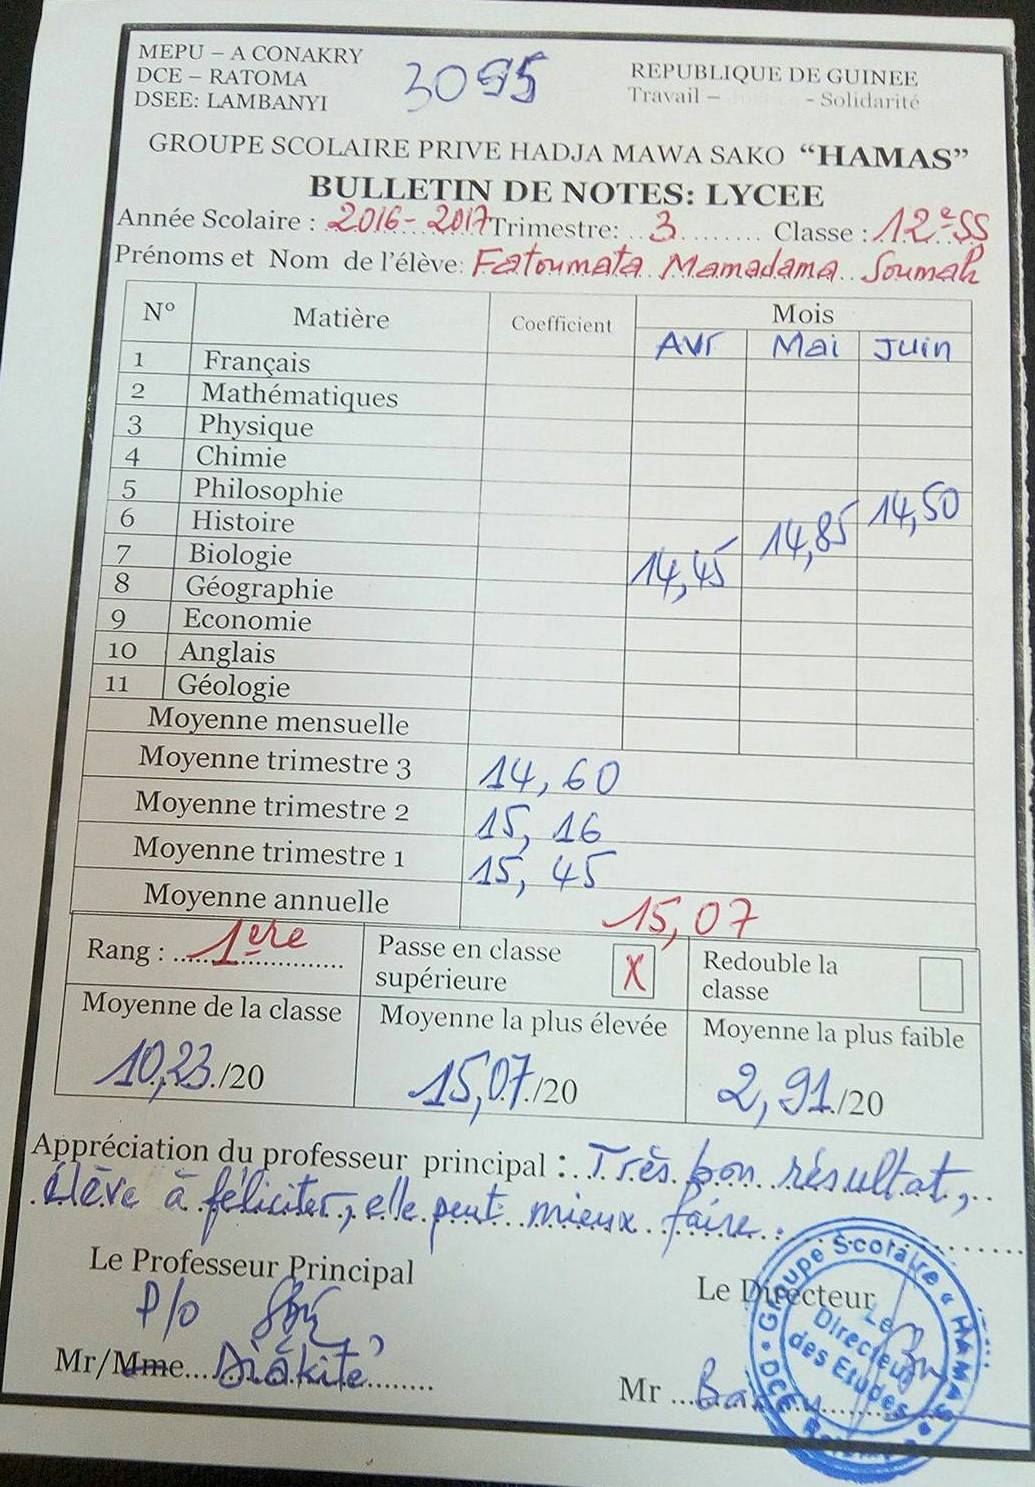 MEPU – A CONAKRY
DCE – RATOMA
DSEE: LAMBANYI
3095
REPUBLIQUE DE GUINEE
Travail – - Solidarité
GROUPE SCOLAIRE PRIVE HADJA MAWA SAKO “HAMAS”
BULLETIN DE NOTES: LYCEE
Année Scolaire : 2016-2017 Trimestre: 3 Classe : 12e SS
Prénoms et Nom de l'élève: Fatoumata Mamadama Soumah
N° Matière Coefficient Mois
Avr Mai Juin
1 Français
2 Mathématiques
3 Physique
4 Chimie
5 Philosophie
6 Histoire
7 Biologie
8 Géographie
9 Economie
10 Anglais
11 Géologie
14,45 14,85 14,50
Moyenne mensuelle
Moyenne trimestre 3 14,60
Moyenne trimestre 2 15,16
Moyenne trimestre 1 15,45
Moyenne annuelle 15,07
Rang : 1ere
Passe en classe supérieure X
Redouble la classe
Moyenne de la classe 10,23/20
Moyenne la plus élevée 15,07/20
Moyenne la plus faible 2,91/20
Appréciation du professeur principal : Très bon résultat,
élève à féliciter, elle peut mieux faire.
Le Professeur Principal
P/o
Mr/Mme Diakité
Le Directeur
Mr Barry
Groupe Scolaire « HAMAS »
DCE
Le Directeur des Etudes